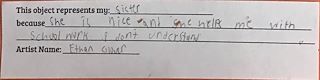 This object represents my: sister
because she is nice and she helps me with
school work I dont understand
Artist Name: Ethan